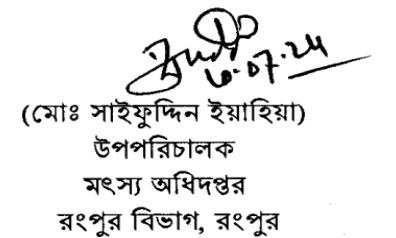 (মোঃ সাইফুদ্দিন ইয়াহিয়া)
উপপরিচালক
মৎস্য অধিদপ্তর
রংপুর বিভাগ, রংপুর